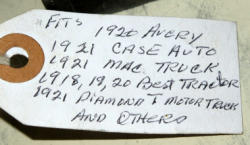 FITS
1920 AVERY
1921 CASE AUTO
1921 MAC. TRUCK
1918, 19, 20 BEST TRACTOR
1921 DIAMOND T MOTOR TRUCK
AND OTHERS